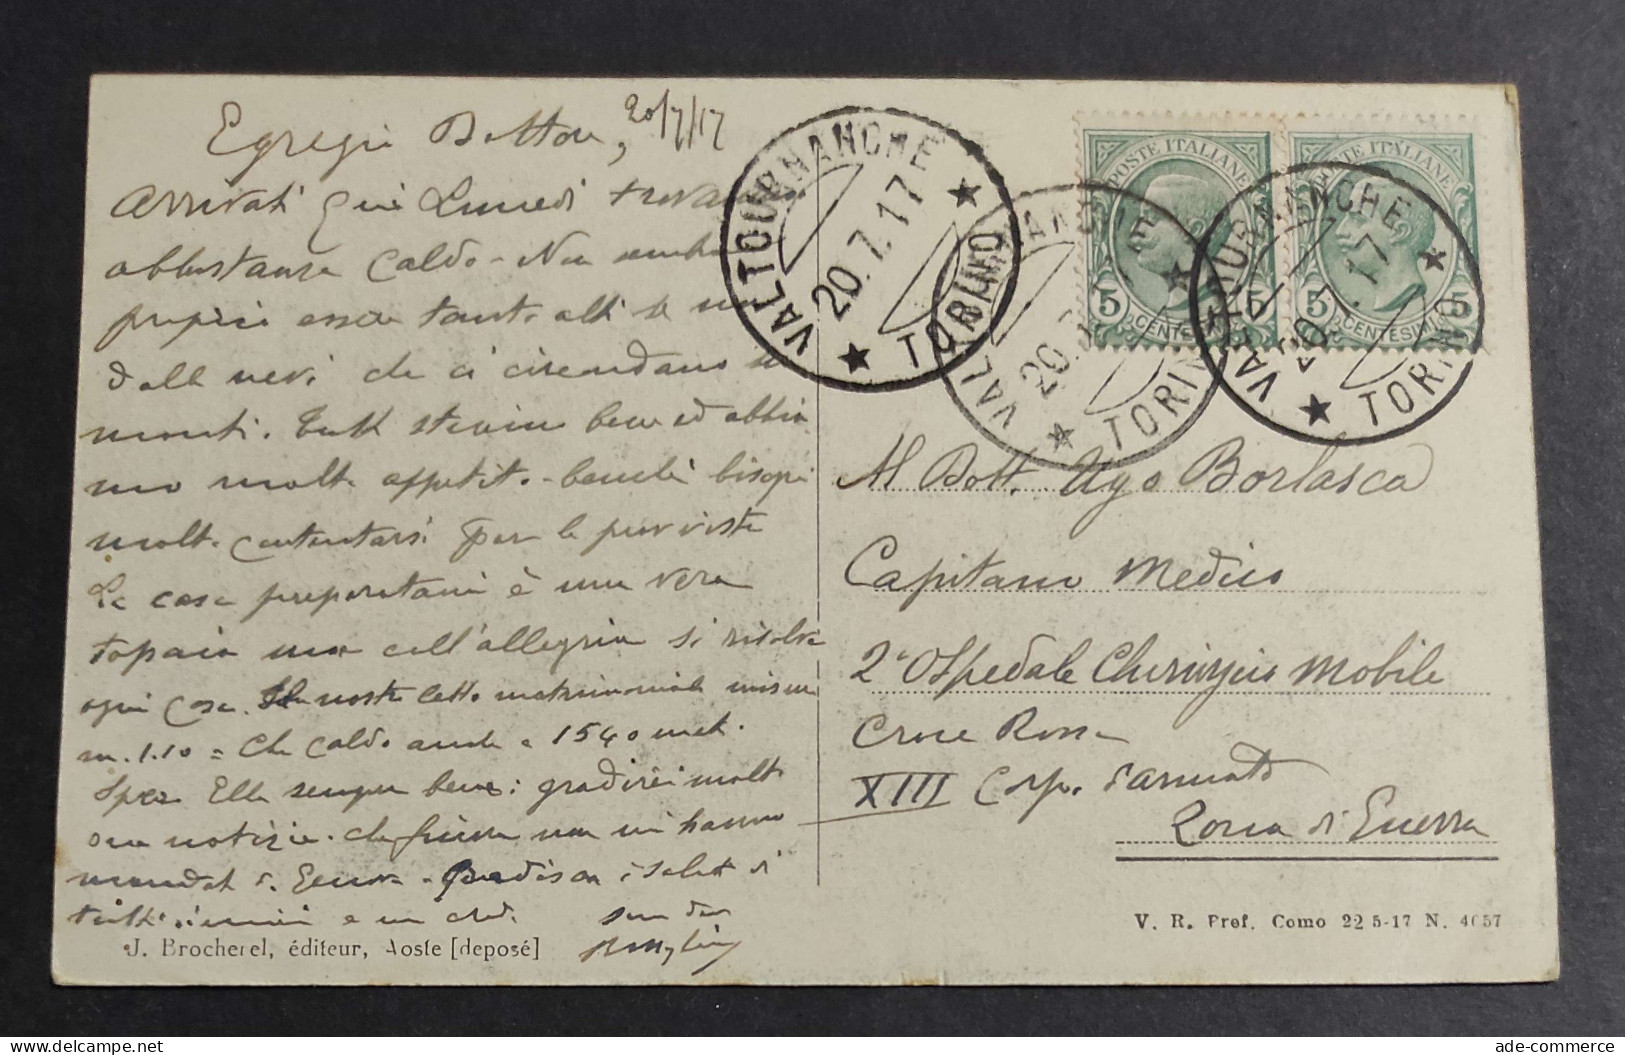 20/7/17
Egregio Dottore,
Arrivati qui Lunedì
abbastanza Caldo - Non
proprio essere tanto
dalle nevi che ci circondano
monti. Tutti stanno bene ed abbia
mo molto appetito. - benchè bisogni
molto contentarsi per le provviste
La casa è una vera
topaia ma coll'allegria si risolve
ogni cosa. nostro letto matrimoniale misura
m. 1.10 = Che caldo anche a 1540 met.
Spero Ella sempre bene: gradirei molto
sue notizie. che non mi hanno
mandato da Genova. Gradisca i saluti di
tutti e mi creda
suo dev
J. Brocherel, éditeur, Aoste [deposé]
VALTOURNANCHE
20.7.17
TORINO
VALTOURNANCHE
20.7.17
TORINO
VALTOURNANCHE
20.7.17
TORINO
POSTE ITALIANE
5 5
CENTESIMI
POSTE ITALIANE
5 5
CENTESIMI
Al Dott. Ugo Borlasca
Capitano Medico
2° Ospedale Chirurgico Mobile
Croce Rossa
XIII Corp. d'armata
Zona di Guerra
V. R. Pref. Como 22 5-17 N. 4657
ade-commerce